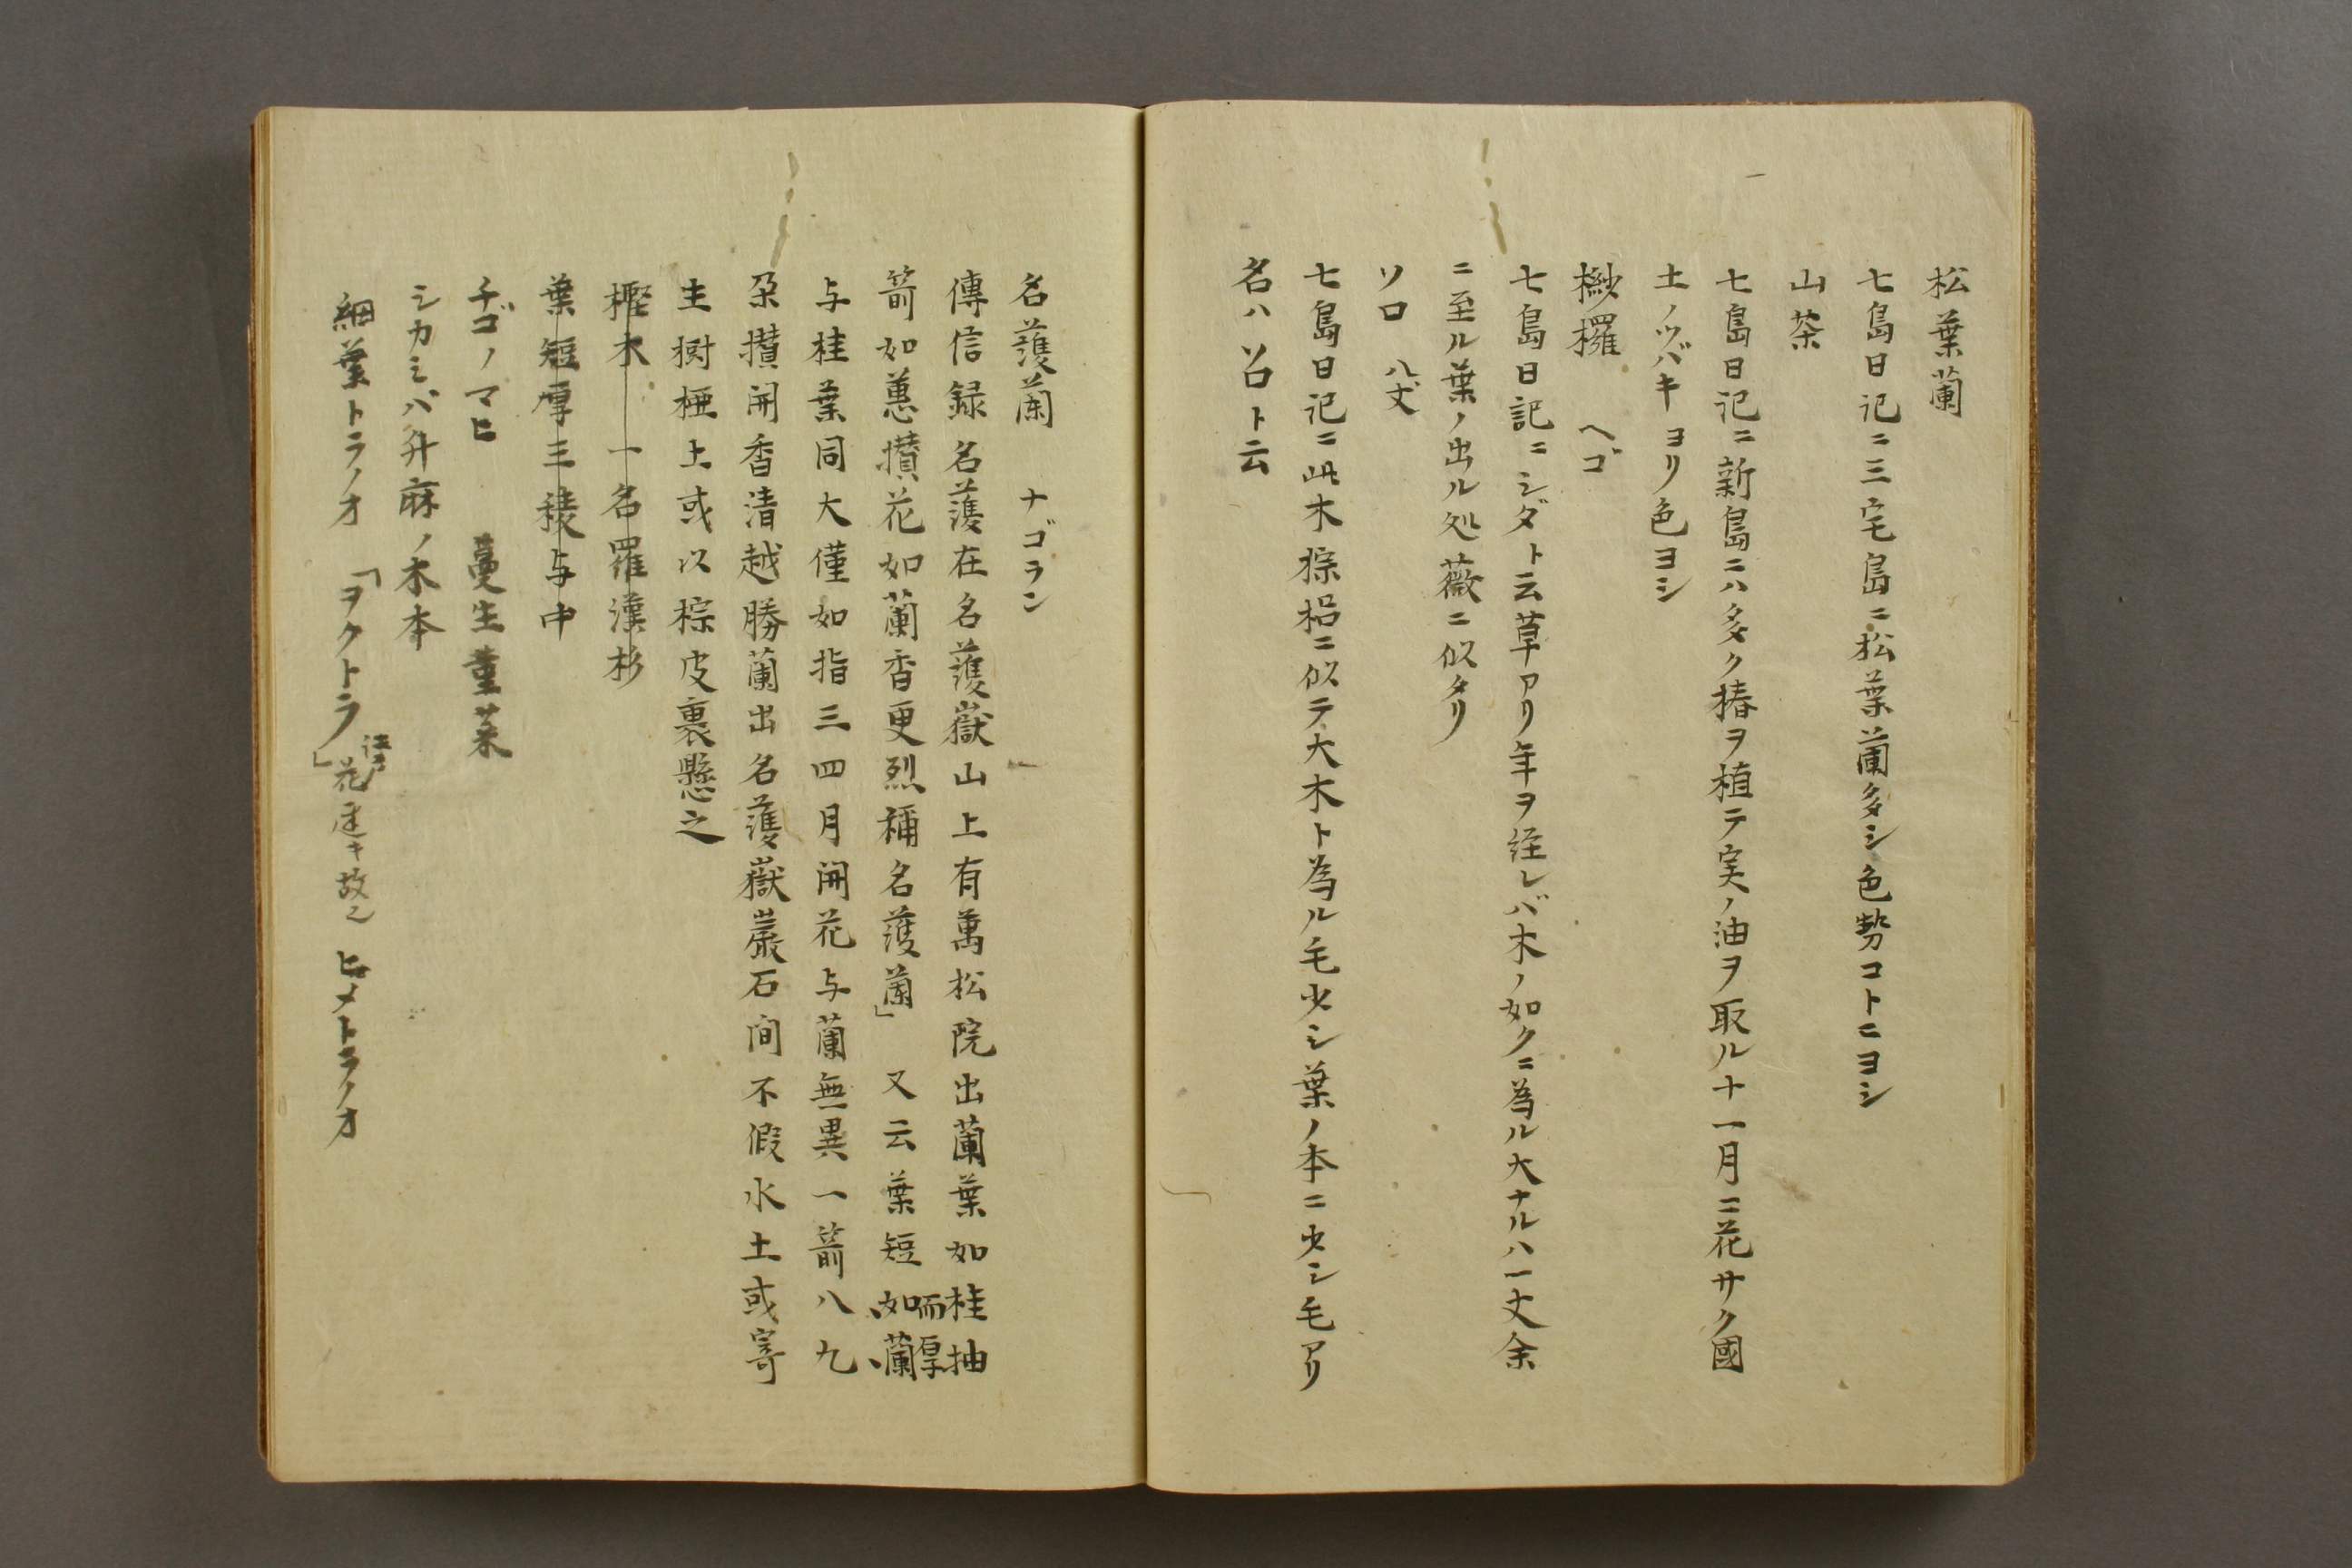 松葉蘭
七島日记ニ三宅島ニ松葉蘭多シ色勢コトニヨシ
山茶
七島日记ニ新島ニハ多ク椿ヲ植テ実ノ油ヲ取ル十一月ニ花サク國
土ノツバキヨリ色ヨシ
桫欏 ヘゴ
七島日記ニシダト云草アリ年ヲ経レバ木ノ如クニ為ル大ナルハ一丈余
ニ至ル葉ノ出ル処薇ニ似タリ
ソロ 八丈
七島日记ニ此木椋梠ニ似テ大木ト為ル毛少シ葉ノ本ニ少シ毛アリ
名ハソロト云
名護蘭 ナゴラン
傳信録名護在名護嶽山上有萬松院出蘭葉如桂抽
箭如蕙攅花如蘭香更烈稱名護蘭」又云葉短而厚如蘭
与桂葉同大僅如指三四月開花与蘭無異一箭八九
朶攅開香清越勝蘭出名護嶽巖石间不假水土或寄
生樹椏上或以棕皮裹懸之
樫木 一名羅漢杉
葉短厚三稜与中
チゴノマヒ 蔓生菫菜
シカミバ升麻ノ木本
細葉トラノオ 「ヲクトラ」江戸 花逆キ故ニ ヒメトラノオ